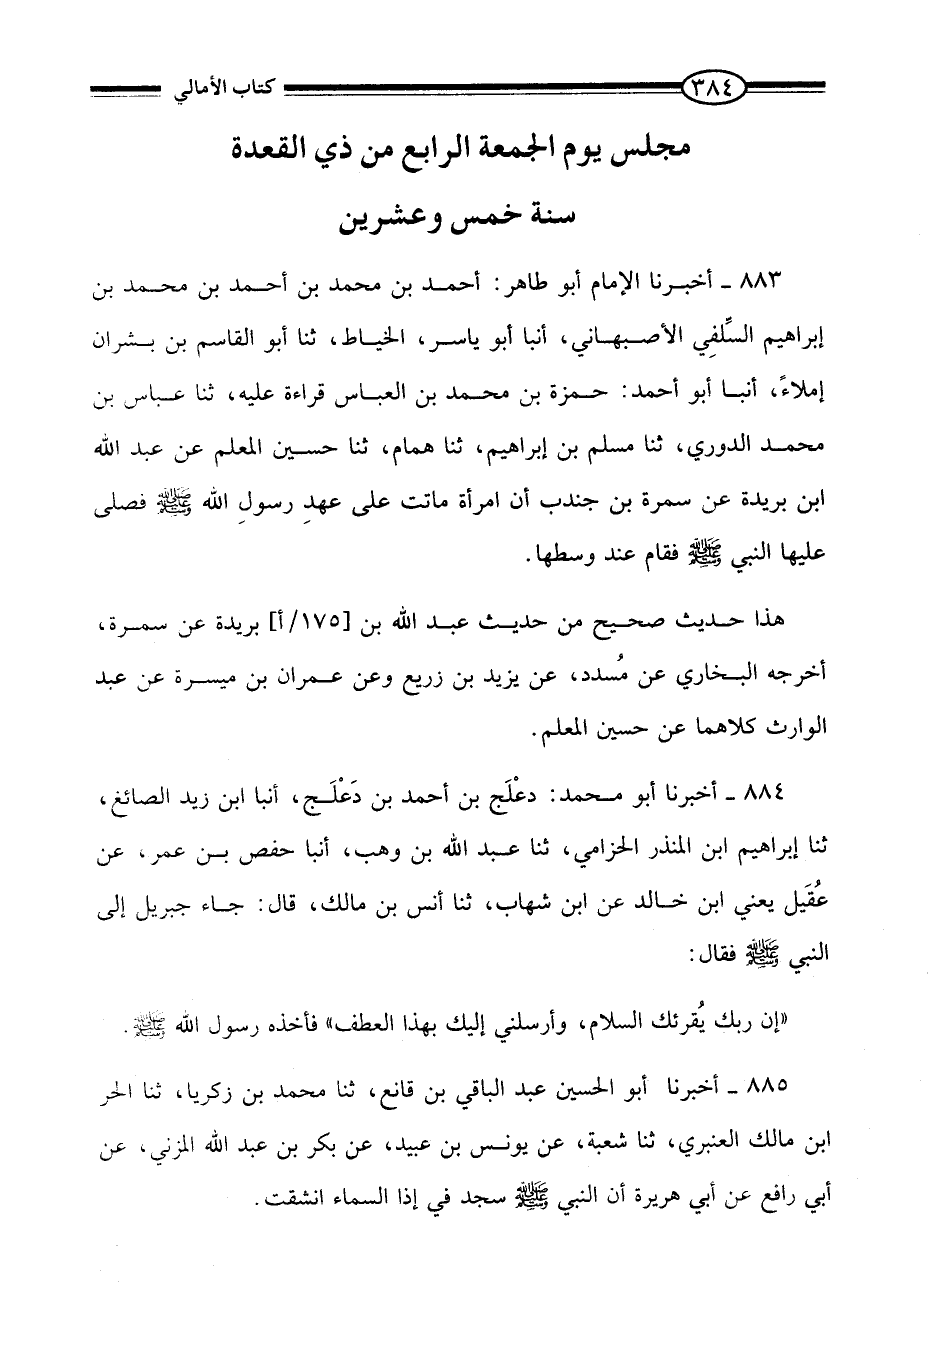 ٣٨٤ كتاب الأمالي
مجلس يوم الجمعة الرابع من ذي القعدة
سنة خمس وعشرين
٨٨٣ ـ أخبرنا الإمام أبو طاهر: أحمد بن محمد بن أحمد بن محمد بن
إبراهيم السِّلَفي الأصبهاني، أنبا أبو ياسر، الخياط، ثنا أبو القاسم بن بشران
إملاءً، أنبا أبو أحمد: حمزة بن محمد بن العباس قراءة عليه، ثنا عباس بن
محمد الدوري، ثنا مسلم بن إبراهيم، ثنا همام، ثنا حسين المعلم عن عبد الله
ابن بريدة عن سمرة بن جندب أن امرأة ماتت على عهدِ رسولِ الله ﷺ فصلى
عليها النبي ﷺ فقام عند وسطها.
هذا حديث صحيح من حديث عبد الله بن [١٧٥/أ] بريدة عن سمرة،
أخرجه البخاري عن مُسدد، عن يزيد بن زريع وعن عمران بن ميسرة عن عبد
الوارث كلاهما عن حسين المعلم.
٨٨٤ ـ أخبرنا أبو محمد: دعْلَج بن أحمد بن دَعْلَج، أنبا ابن زيد الصائغ،
ثنا إبراهيم ابن المنذر الحزامي، ثنا عبد الله بن وهب، أنبا حفص بن عمر، عن
عُقَيل يعني ابن خالد عن ابن شهاب، ثنا أنس بن مالك، قال: جاء جبريل إلى
النبي ﷺ فقال:
«إن ربك يُقرئك السلام، وأرسلني إليك بهذا العطف» فأخذه رسول الله ﷺ.
٨٨٥ ـ أخبرنا أبو الحسين عبد الباقي بن قانع، ثنا محمد بن زكريا، ثنا الحر
ابن مالك العنبري، ثنا شعبة، عن يونس بن عبيد، عن بكر بن عبد الله المزني، عن
أبي رافع عن أبي هريرة أن النبي ﷺ سجد في إذا السماء انشقت.